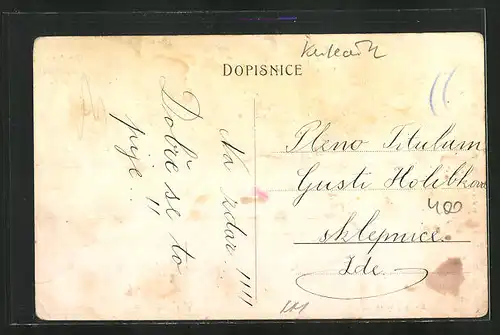 DOPISNICE
Na zdar !!!!
Dobře se to
pije !!
Pleno Titulum
Gusti Holibkova
400
sklepnice
Zde.